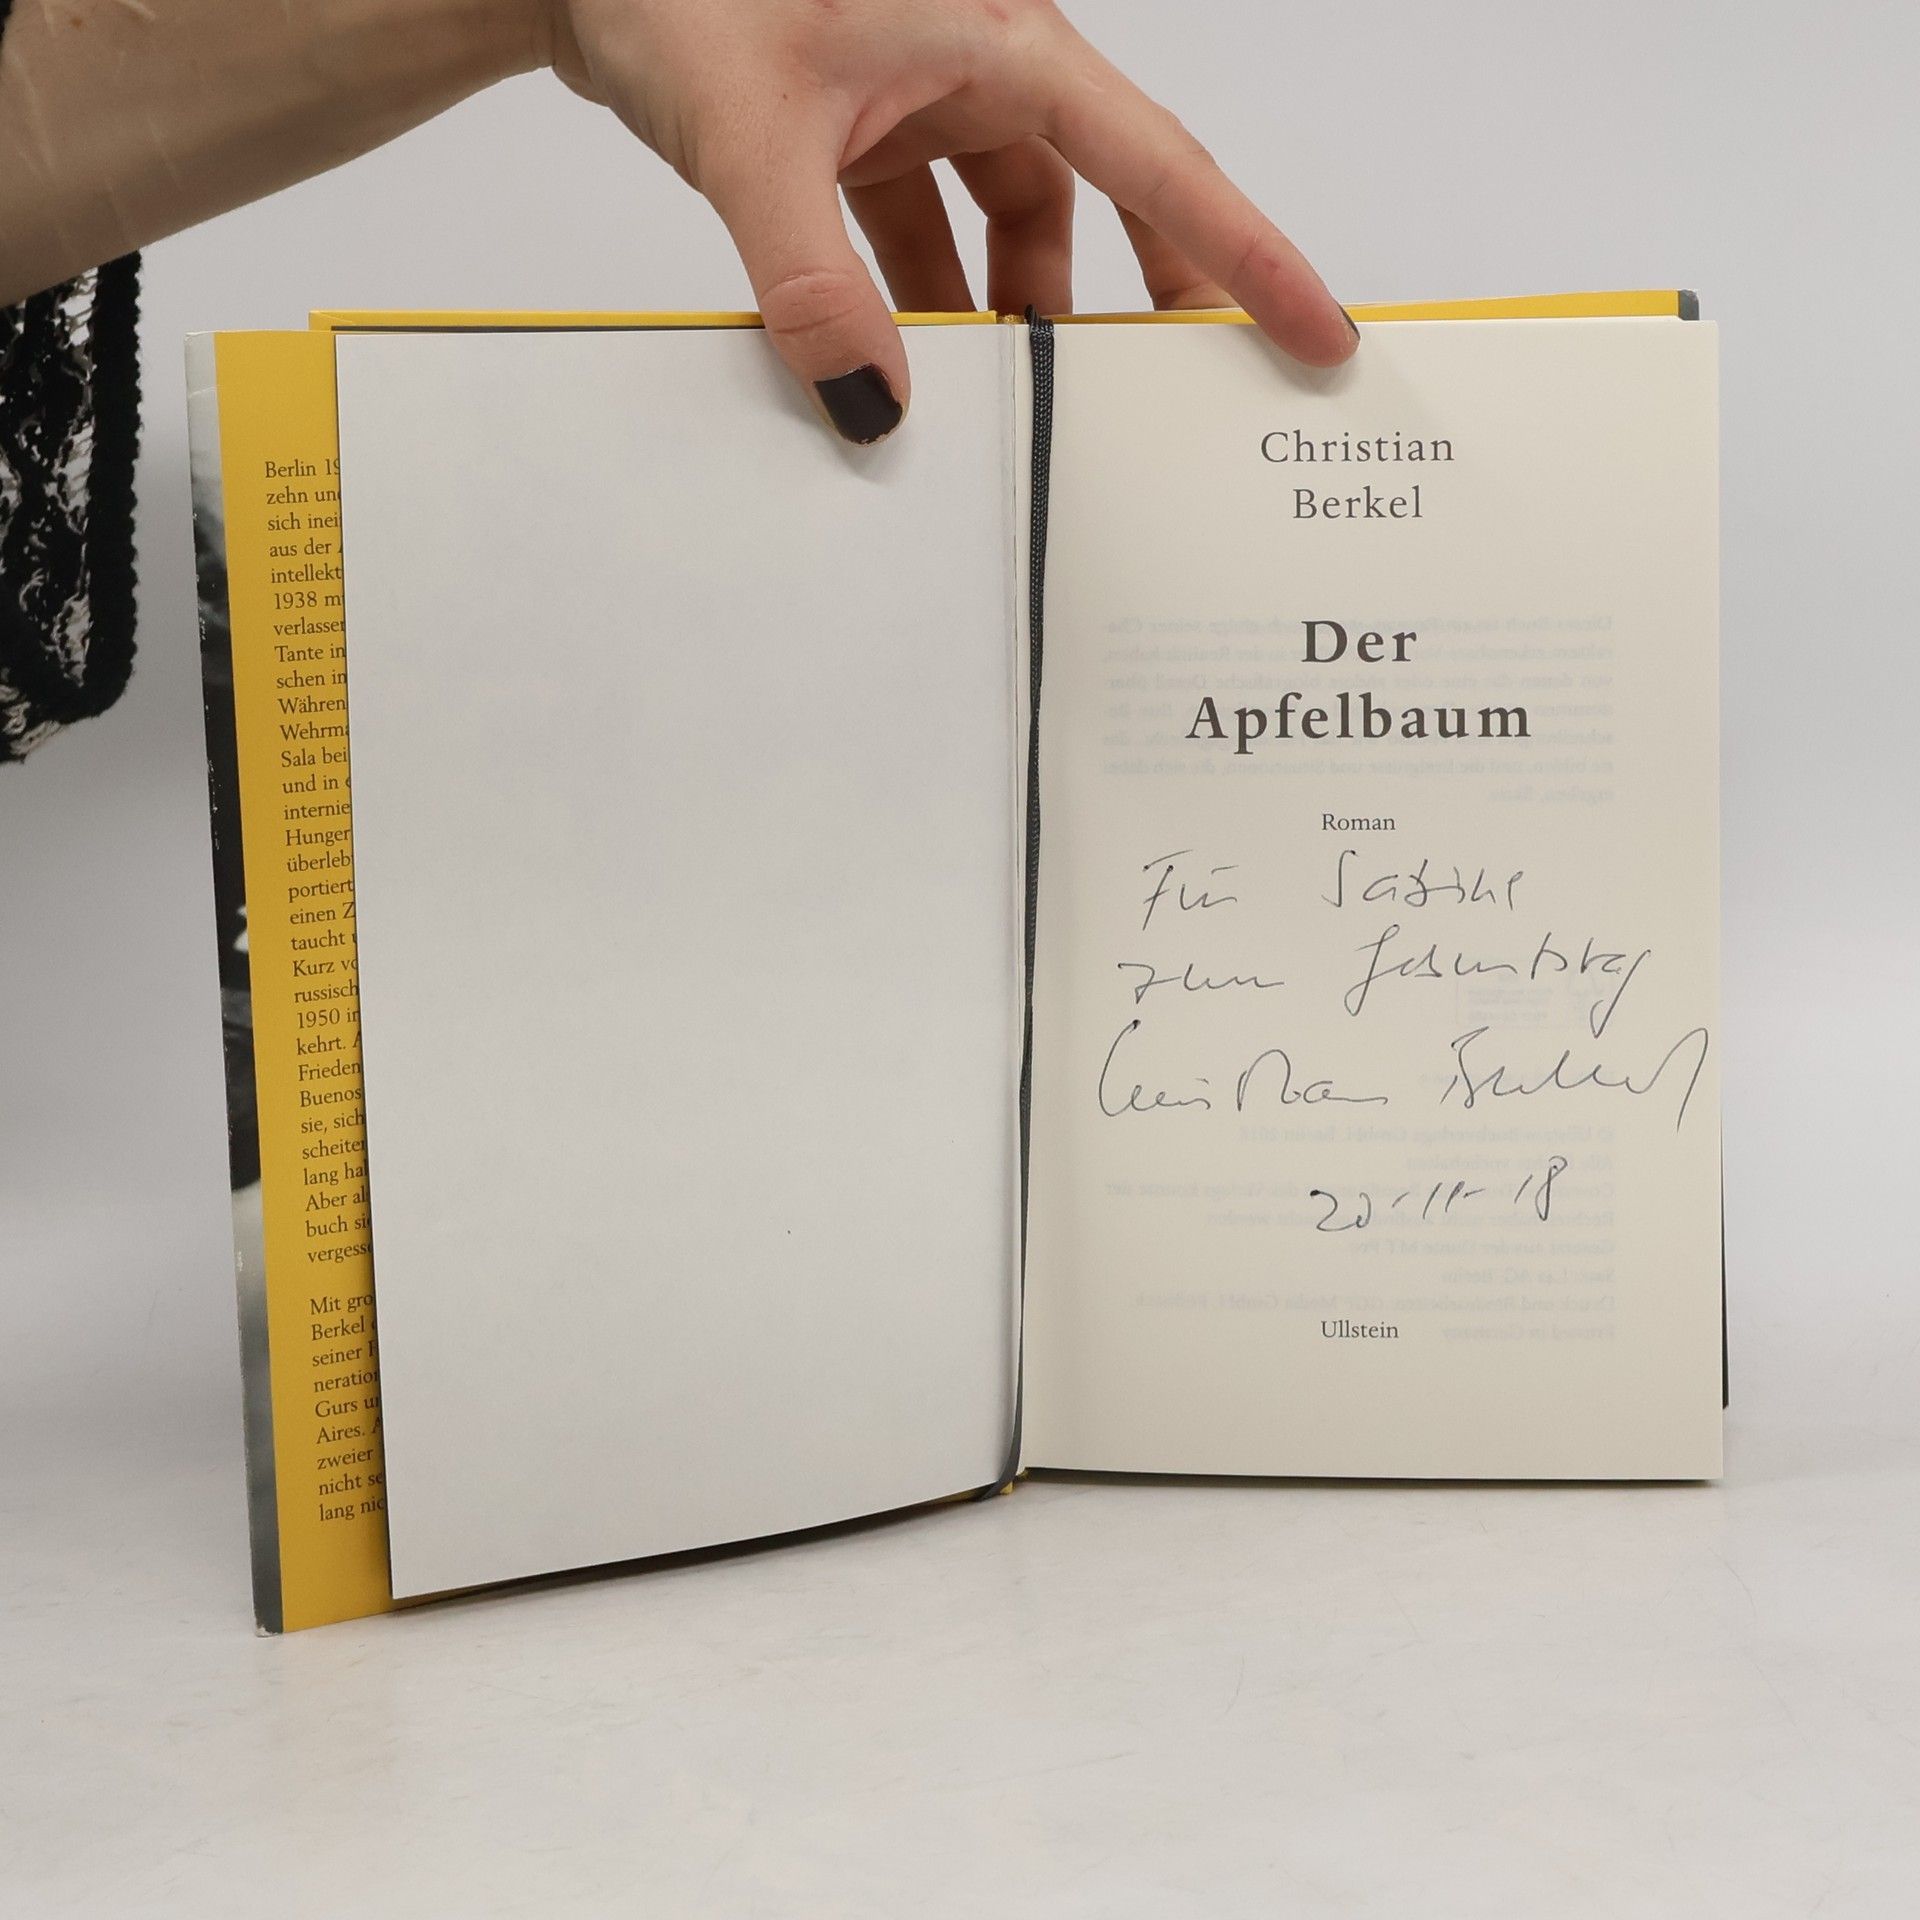 Berlin 19
zehn un
sich inei
aus der
intellekt
1938 m
verlasse
Tante in
schen in
Währen
Wehrma
Sala bei
und in
internie
Hunger
überleb
portiert
einen Z
taucht
Kurz vo
russisch
1950 in
kehrt. A
Frieden
Buenos
sie, sich
scheiter
lang ha
Aber al
buch si
vergess
Mit gro
Berkel
seiner F
neratio
Gurs u
Aires. A
zweier
nicht se
lang nic
Christian
Berkel
Der
Apfelbaum
Roman
Für Sabine
zum Geburtstag
Christian Berkel
20-11-18
Ullstein